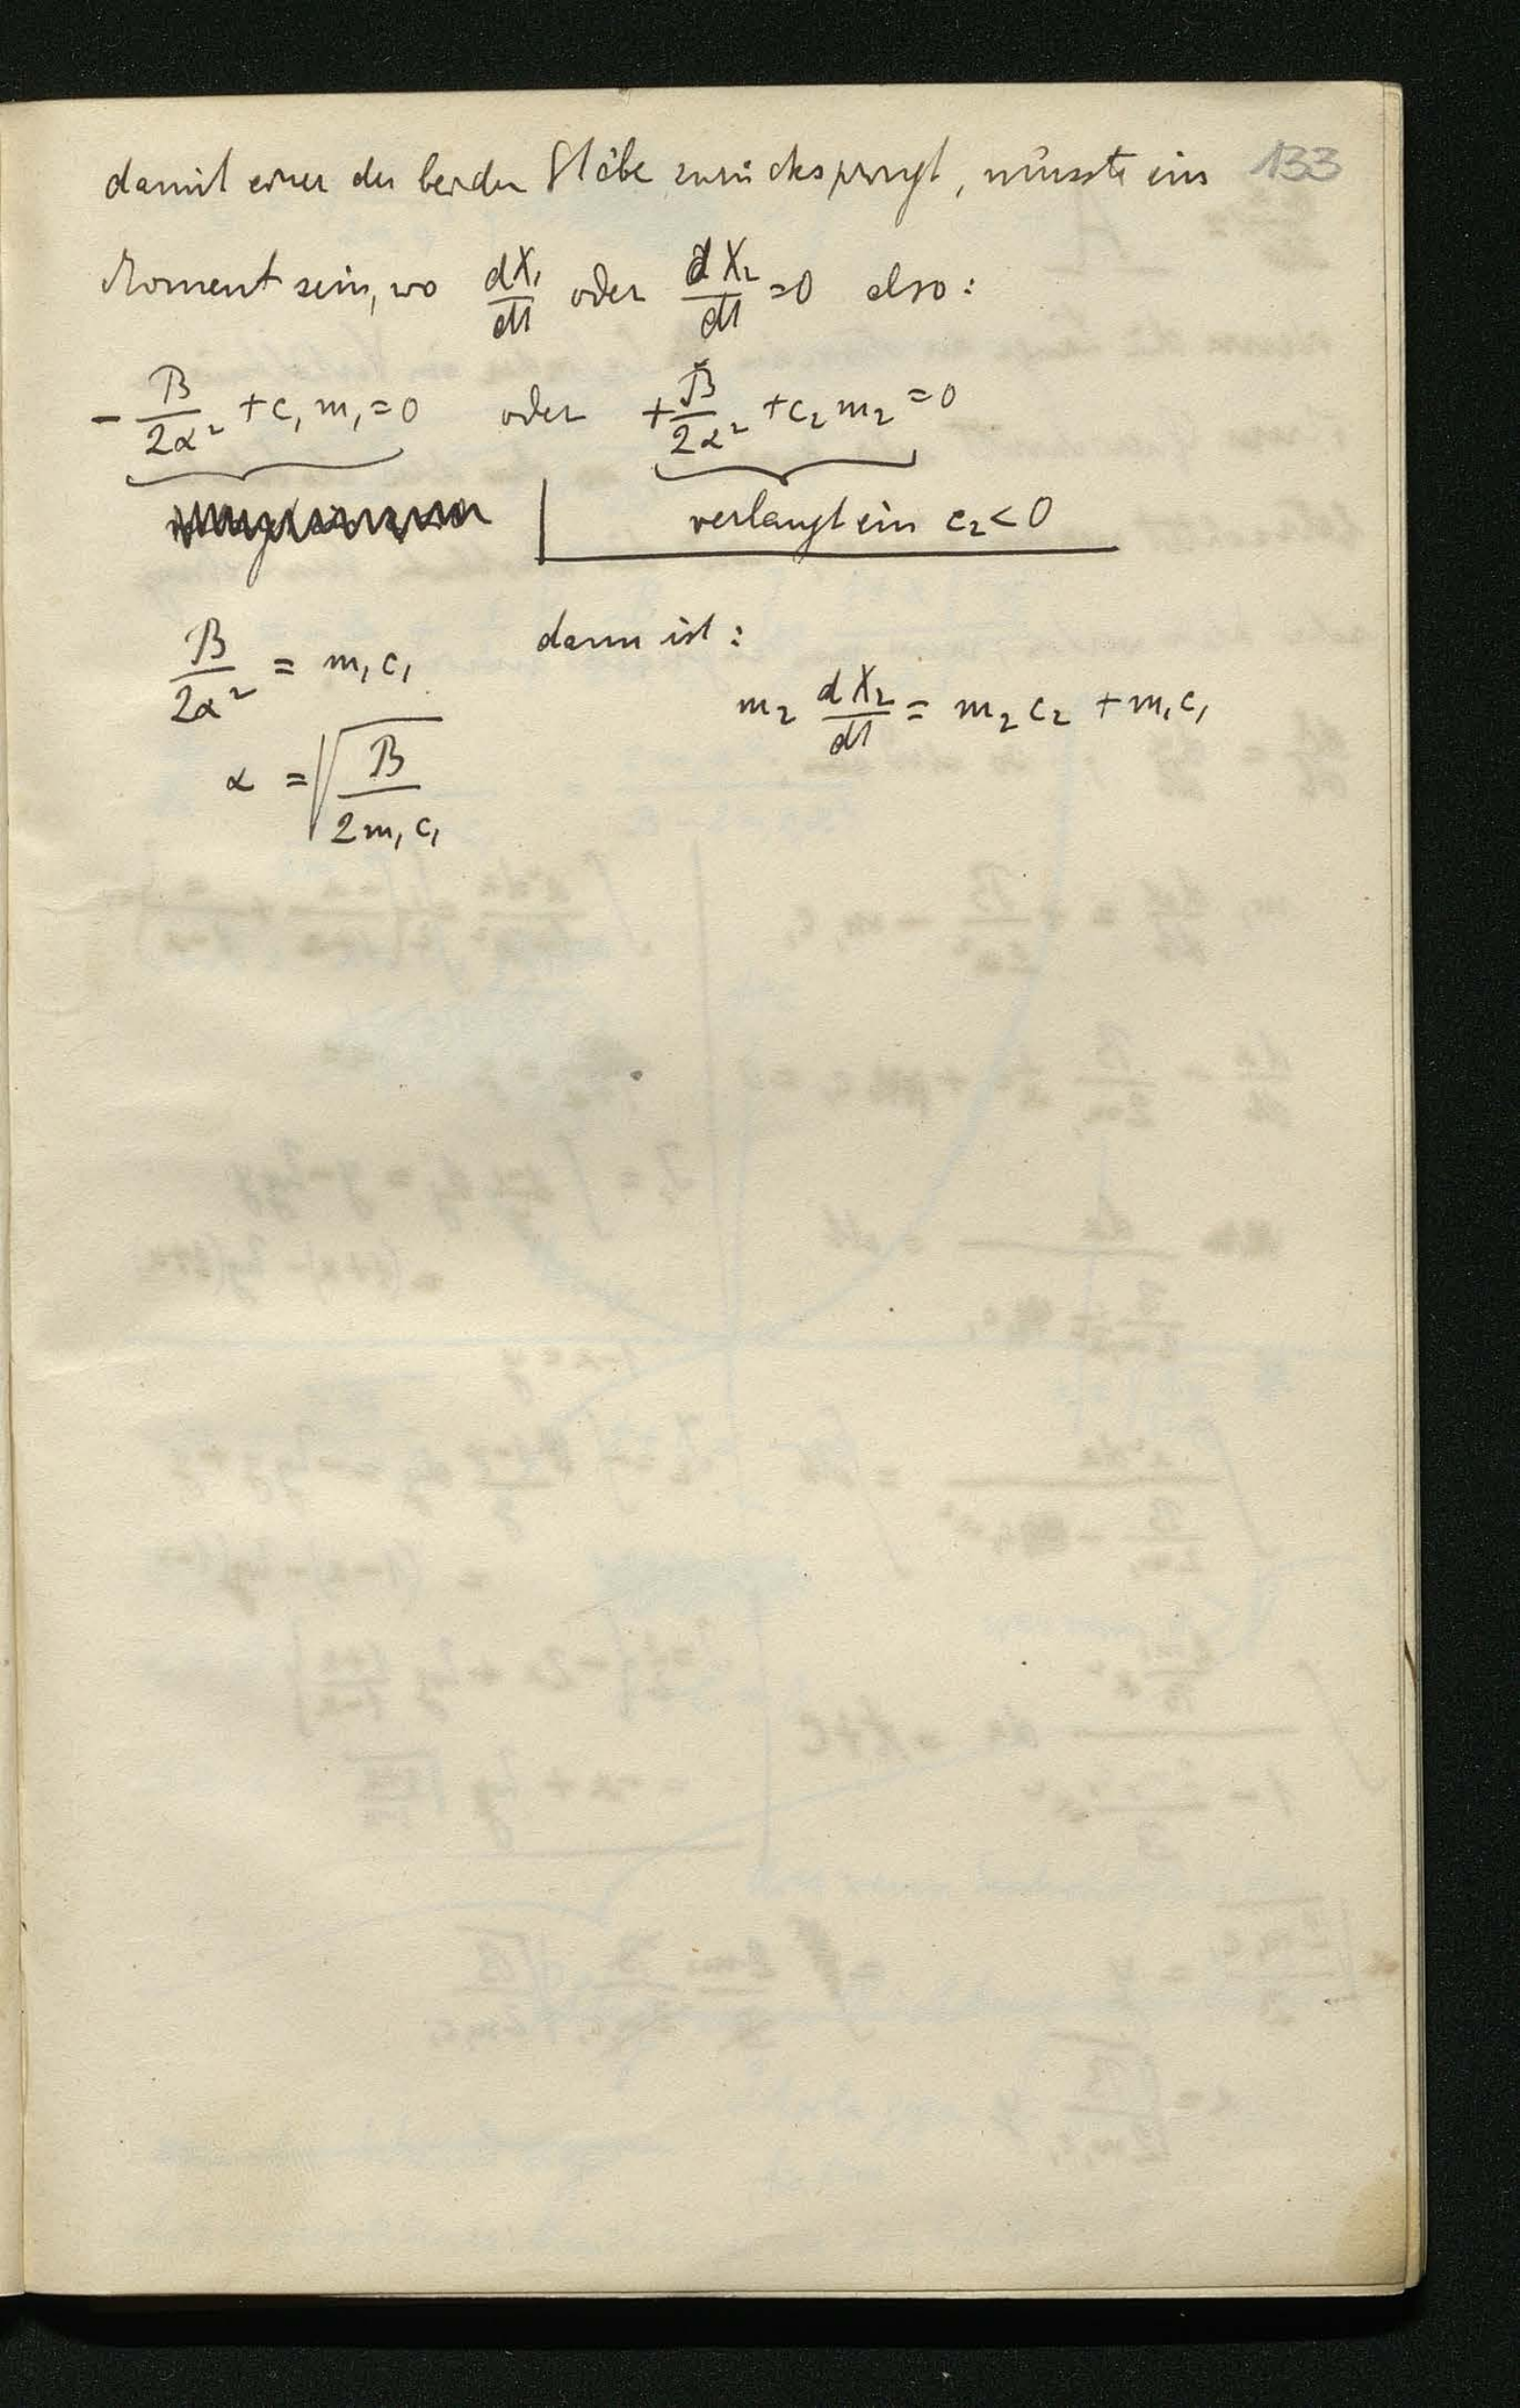 133
damit einer der beiden Stäbe zurückspringt, müsste ein
Moment sein, wo dX₁/dt oder dX₂/dt = 0 also:
- B/2α² + c₁ m₁ = 0 oder + B/2α² + c₂ m₂ = 0
verlangt ein c₂ < 0
B/2α² = m₁ c₁ dann ist:
m₂ dX₂/dt = m₂ c₂ + m₁ c₁
α = √(B/2m₁c₁)